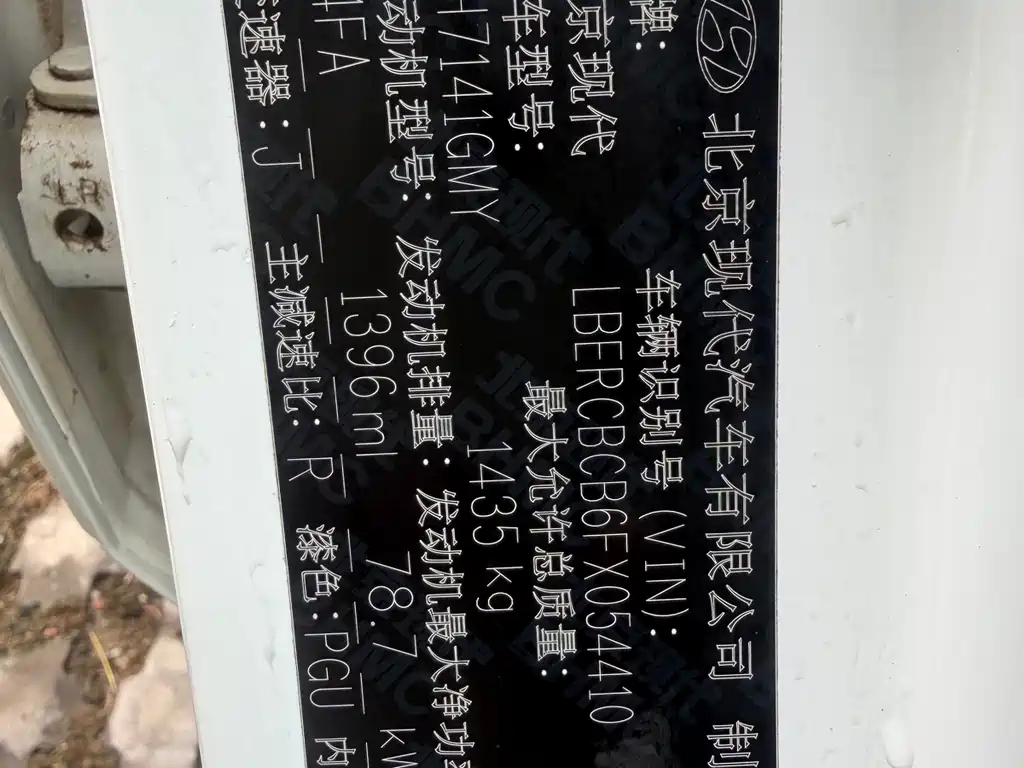 北京现代汽车有限公司 制
牌: 车辆识别号 (VIN):
京现代 LBERCBCB6FX054410
车型号: 最大允许总质量:
H7141GMY 1435kg
动机型号: 发动机排量: 发动机最大净功
4FA 1396ml 78.7 kW
速器: J 主减速比: R 漆色: PGU 内